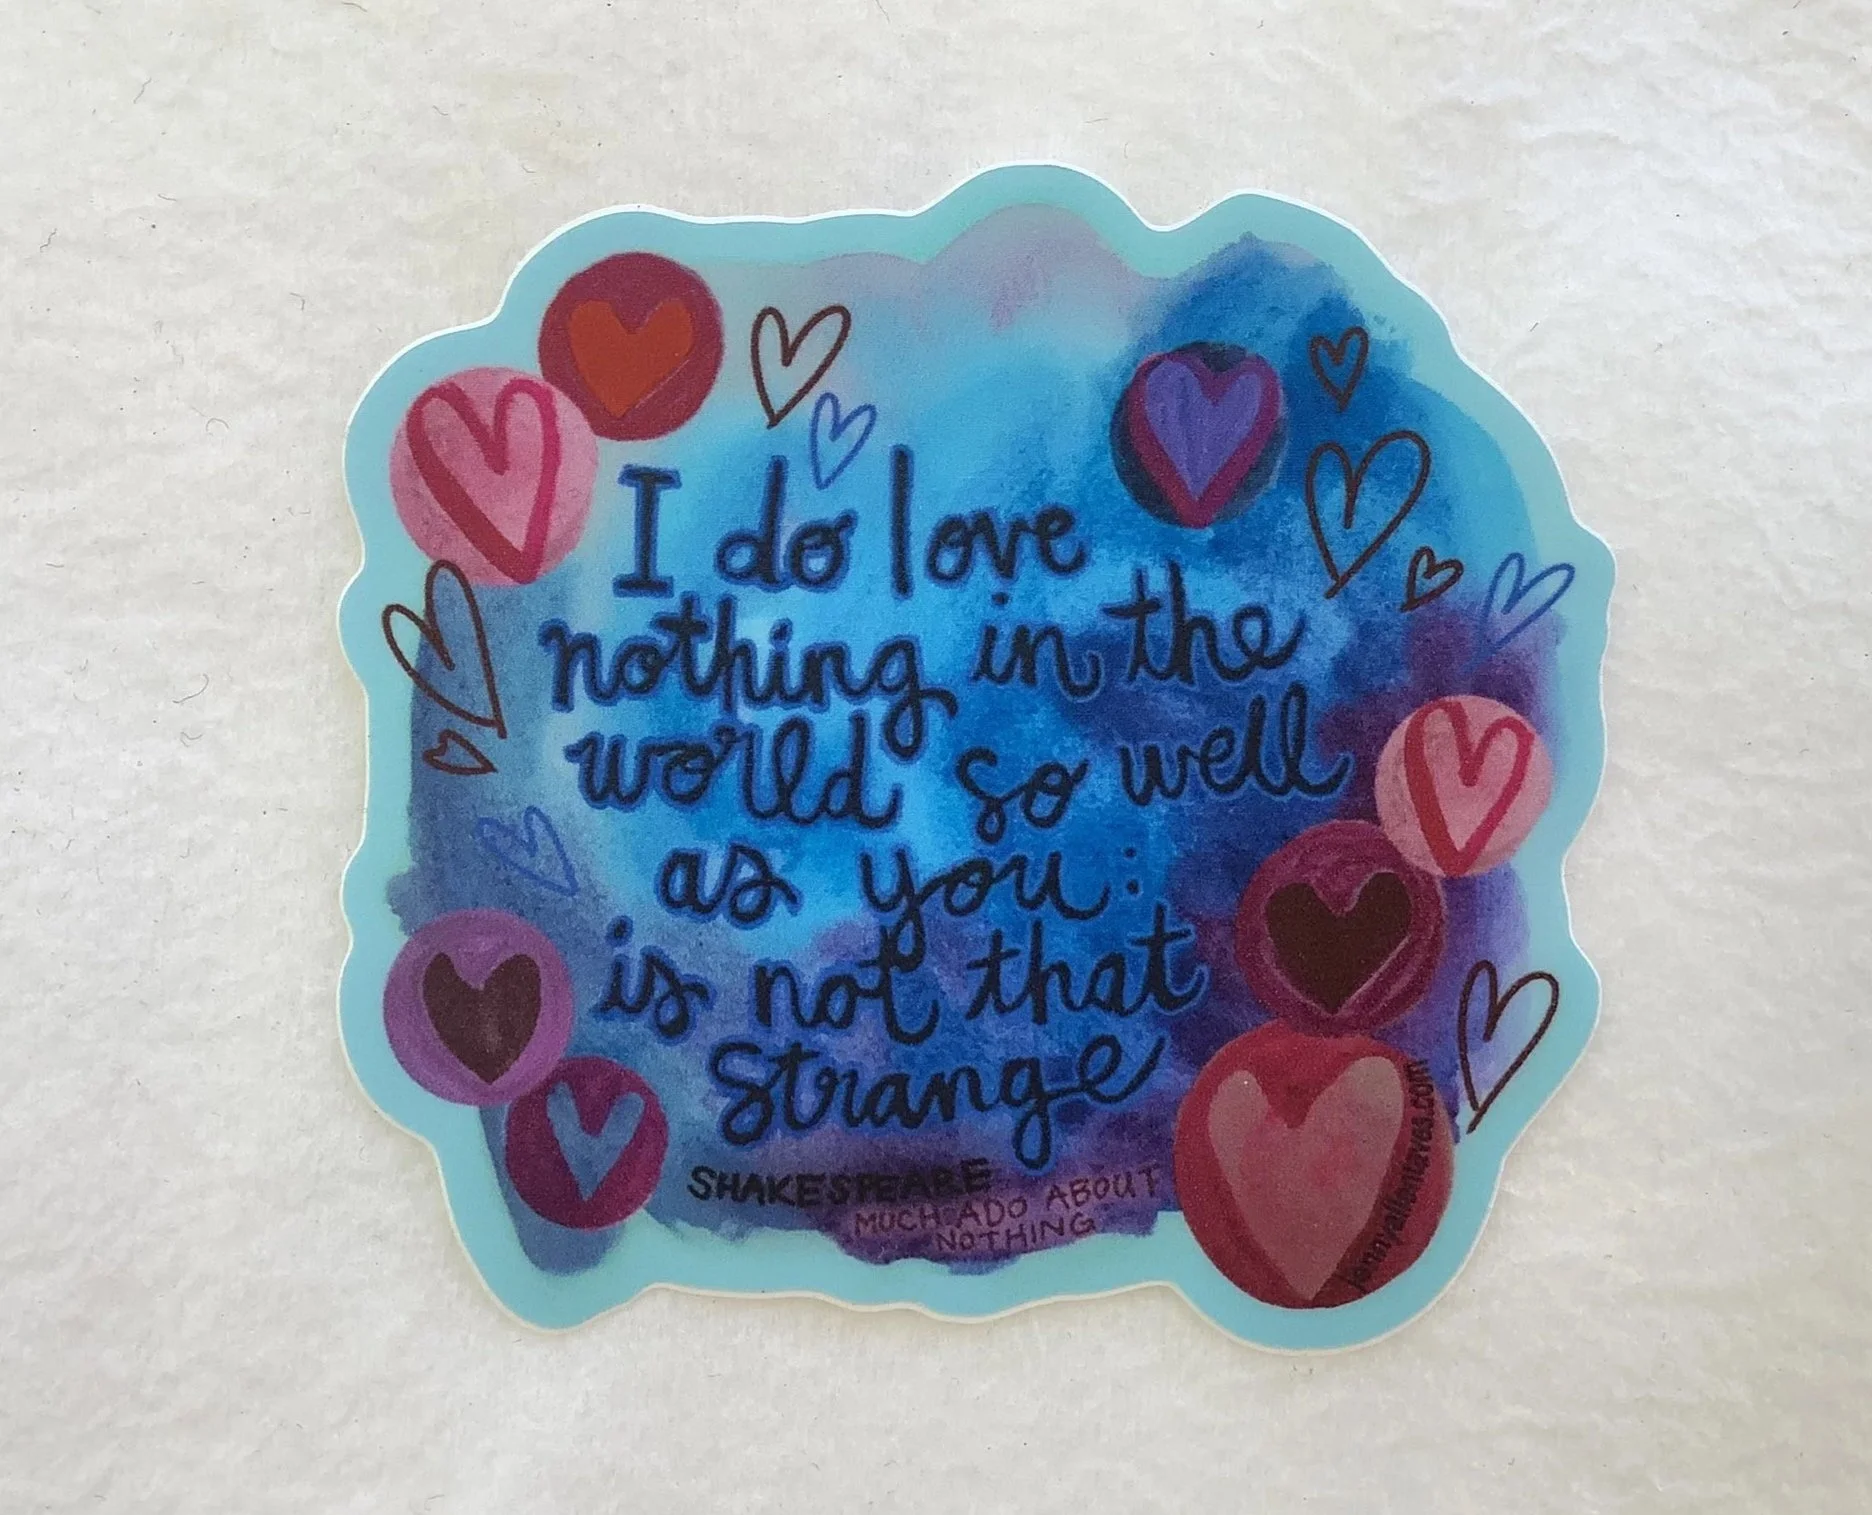 I do love
nothing in the
world so well
as you:
is not that
Strange
SHAKESPEARE
MUCH ADO ABOUT
NOTHING
jennyallantaves.com